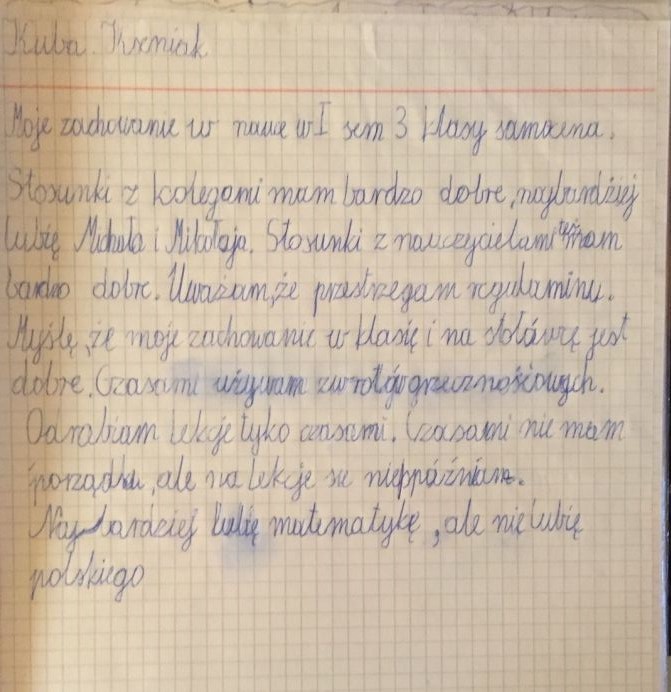 Kuba Kxniak
Moje zachowanie w nauce w I sem 3 klasy samocena.
Stosunki z kolegami mam bardzo dobre, najbardziej
lubię Michała i Mikołaja. Stosunki z nauczycielami też mam
bardzo dobre. Uważam, że przestrzegam regulaminu.
Myślę, że moje zachowanie w klasię i na stołówcę jest
dobre. Czasami używam zwrotów grzecznościowych.
Odrabiam lekcje tyko czasami. Czasami nie mam
porządku, ale na lekcje się nie spóźniam.
Najbardziej lubię matematykę, ale nie lubię
polskiego